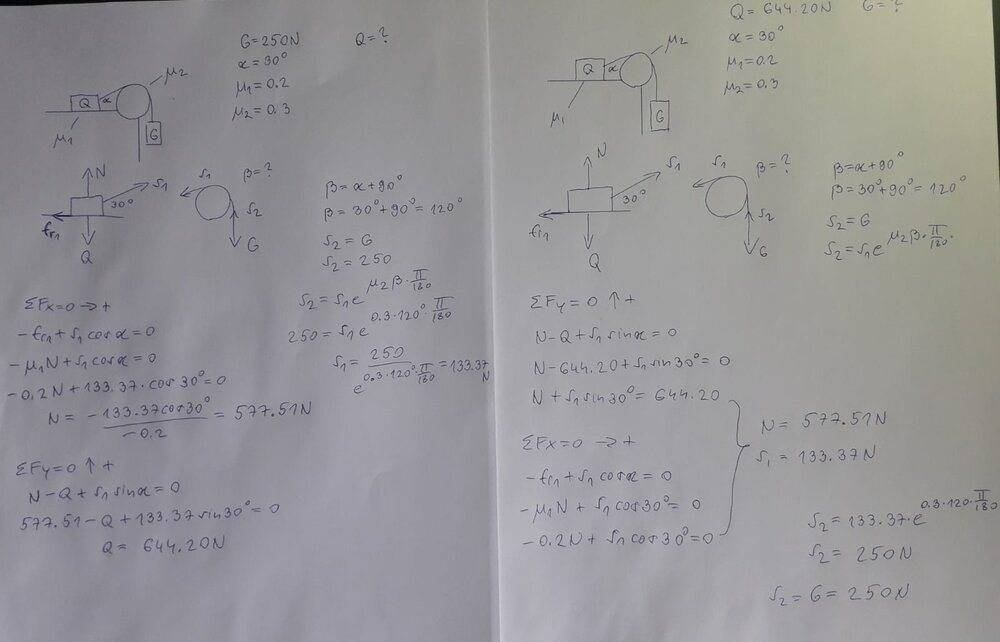 G=250N Q=?
α=30°
μ1=0.2
μ2=0.3
μ2
Q α
μ1
G
N
S1
30°
fr1
Q
S1
β=?
S2
G
β=α+90°
β=30°+90°=120°
S2=G
S2=250
S2=S1e^μ2β·π/180
250=S1e^0.3·120°·π/180
S1=250/e^0.3·120°·π/180=133.37N
ΣFx=0→+
-fr1+S1cosα=0
-μ1N+S1cosα=0
-0.2N+133.37·cos30°=0
N=-133.37cos30°/-0.2=577.51N
ΣFy=0↑+
N-Q+S1sinα=0
577.51-Q+133.37sin30°=0
Q=644.20N
Q=644.20N G=?
α=30°
μ1=0.2
μ2=0.3
μ2
Q α
μ1
G
N
S1
30°
fr1
Q
S1
β=?
S2
G
β=α+90°
β=30°+90°=120°
S2=G
S2=S1e^μ2β·π/180·
ΣFy=0↑+
N-Q+S1sinα=0
N-644.20+S1sin30°=0
N+S1sin30°=644.20
ΣFx=0→+
-fr1+S1cosα=0
-μ1N+S1cos30°=0
-0.2N+S1cos30°=0
N=577.51N
S1=133.37N
S2=133.37·e^0.3·120·π/180
S2=250N
S2=G=250N